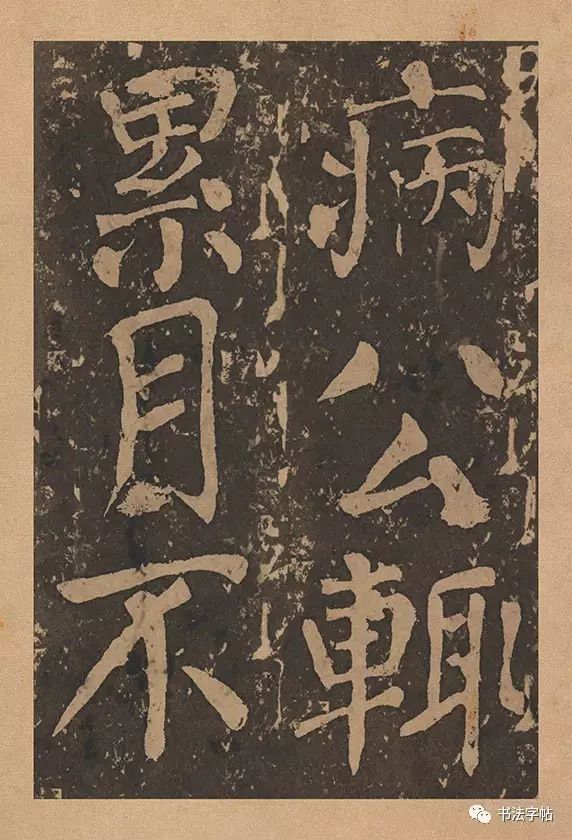 病公輒
累月不
书法字帖